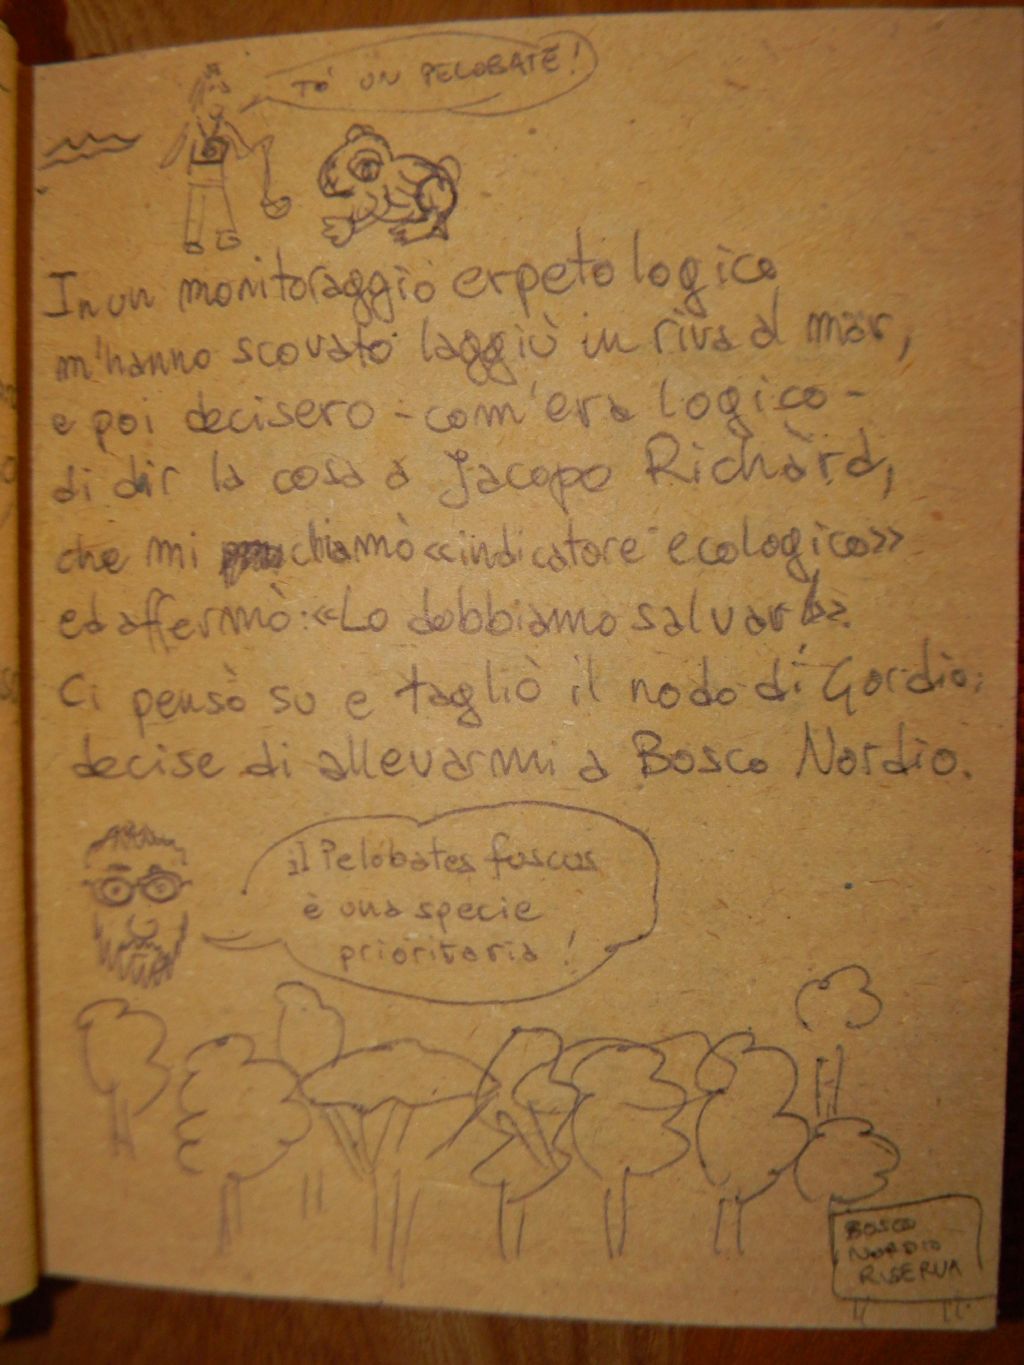 TÒ UN PELOBATE!
In un monitoraggio erpetologico
m'hanno scovato laggiù in riva al mar,
e poi decisero - com'era logico -
di dir la cosa a Jacopo Richàrd,
che mi chiamò «indicatore ecologico»
ed affermò: «Lo dobbiamo salvar!».
Ci pensò su e tagliò il nodo di Gordio:
decise di allevarmi a Bosco Nordio.
Il Pelobates fuscus
è una specie
prioritaria!
BOSCO
NORDIO
RISERVA